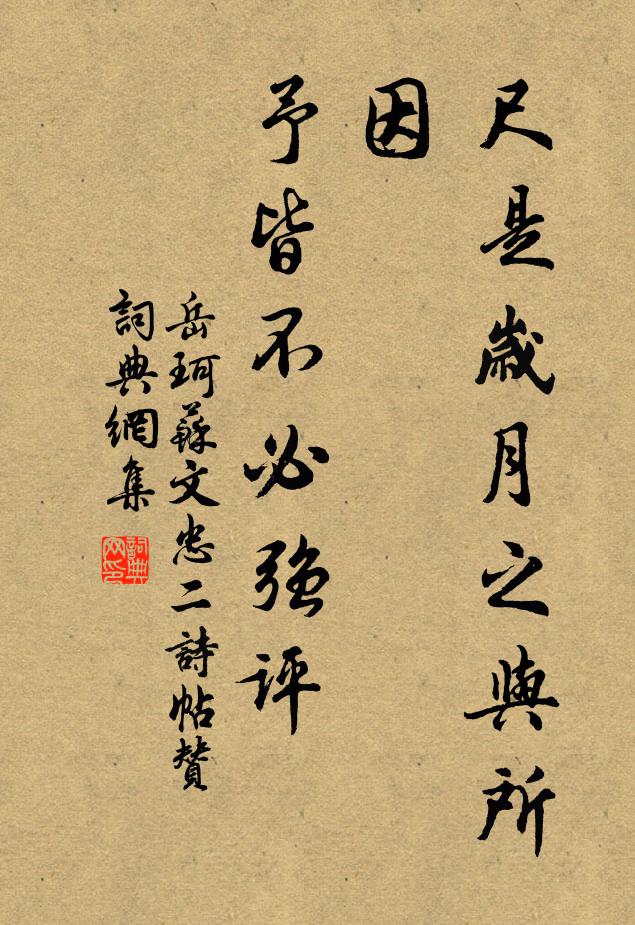 尺是歲月之與所
因
予皆不必強評
岳珂蘇文忠二詩帖贊
詞典網集
詞典
网印